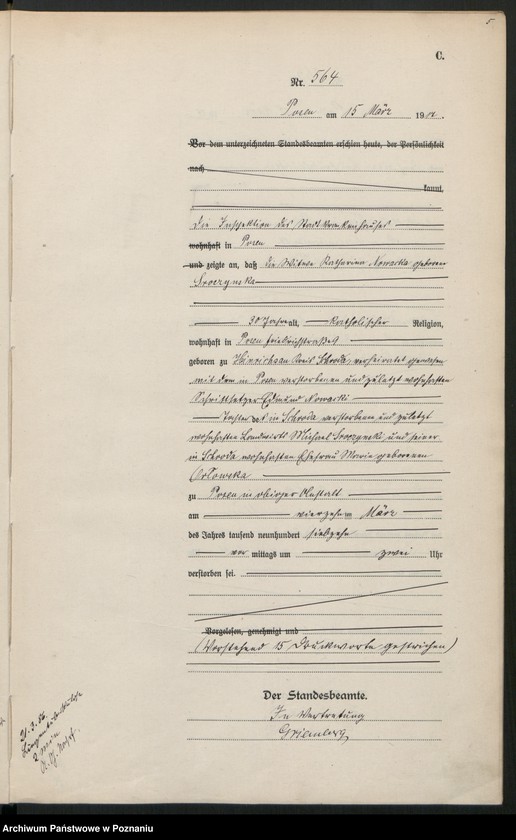 5
C.
Nr. 564
Posen am 15 März 19
Vor dem unterzeichneten Standesbeamten erschien heute, der Persönlichkeit
nach
kannt,
Die Inspektion des Stadtkrankenhauses
wohnhaft in Posen
und zeigte an, daß die Witwe Katharina Nowacka geborene
Sroczynska
30 Jahre alt, katholischer Religion,
wohnhaft in Posen
geboren zu Kreis Schroda, verheiratet gewesen
mit dem in Posen verstorbenen und zuletzt wohnhaften
Schriftsetzer Edmund Nowacki
Tochter des in Schroda verstorbenen und zuletzt
wohnhaften Landwirts Michael Sroczynski und seiner
in Schroda wohnhaften Ehefrau Marie geborenen
Orlowska
zu Posen in obiger Anstalt
am vierzehn März
des Jahres tausend neunhundert siebzehn
vor mittags um zwei Uhr
verstorben sei.
Vorgelesen, genehmigt und
(Vorstehend 15 Druckworte gestrichen)
Der Standesbeamte.
In Vertretung
21.3.
Lungentuberkulose
Archiwum Państwowe w Poznaniu